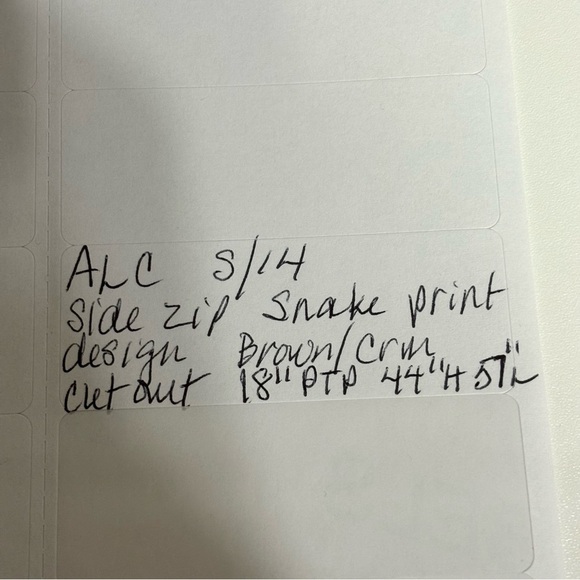 ALC S/14
Side zip Snake print
design Brown/Crm
cut out 18" PTP 44"H 57"L